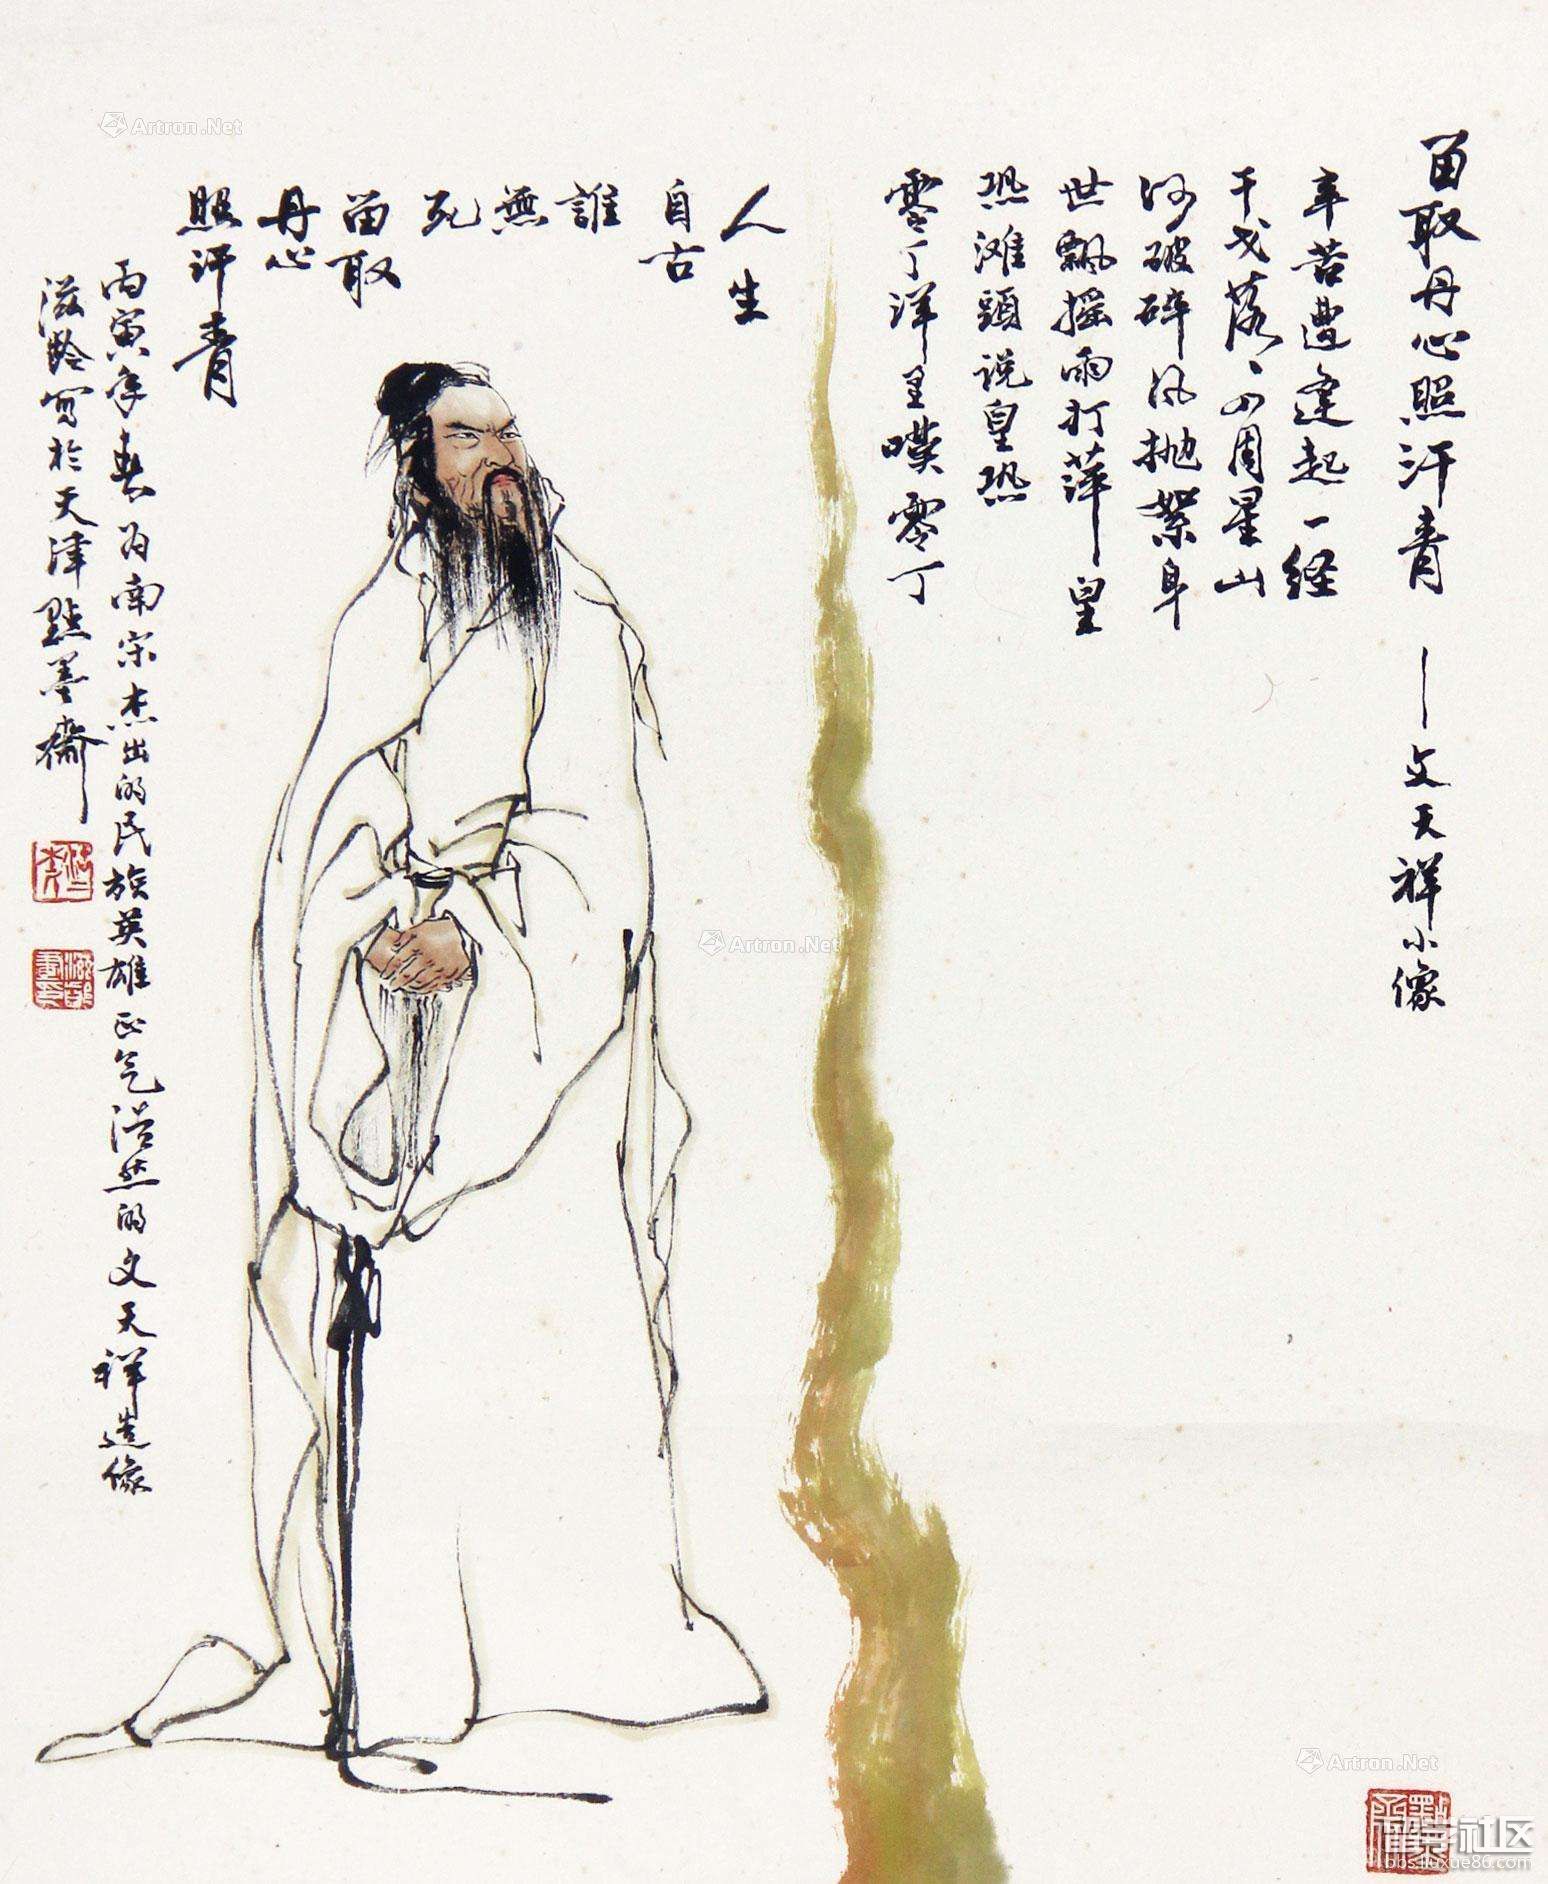 留取丹心照汗青——文天祥小像
辛苦遭逢起一经
干戈落〻四周星山
河破碎风抛絮身
世飘摇雨打萍—皇
恐滩頭说皇恐
零丁洋里嘆零丁
人生
自古
誰
無
死
留取
丹心
照汗青
丙寅年春为南宋杰出的民族英雄正气浩然的文天祥造像
滋龄寫於天津點墨齋
Artron.Net
Artron.Net
Artron.Net
留学社区
bbs.liuxue86.com